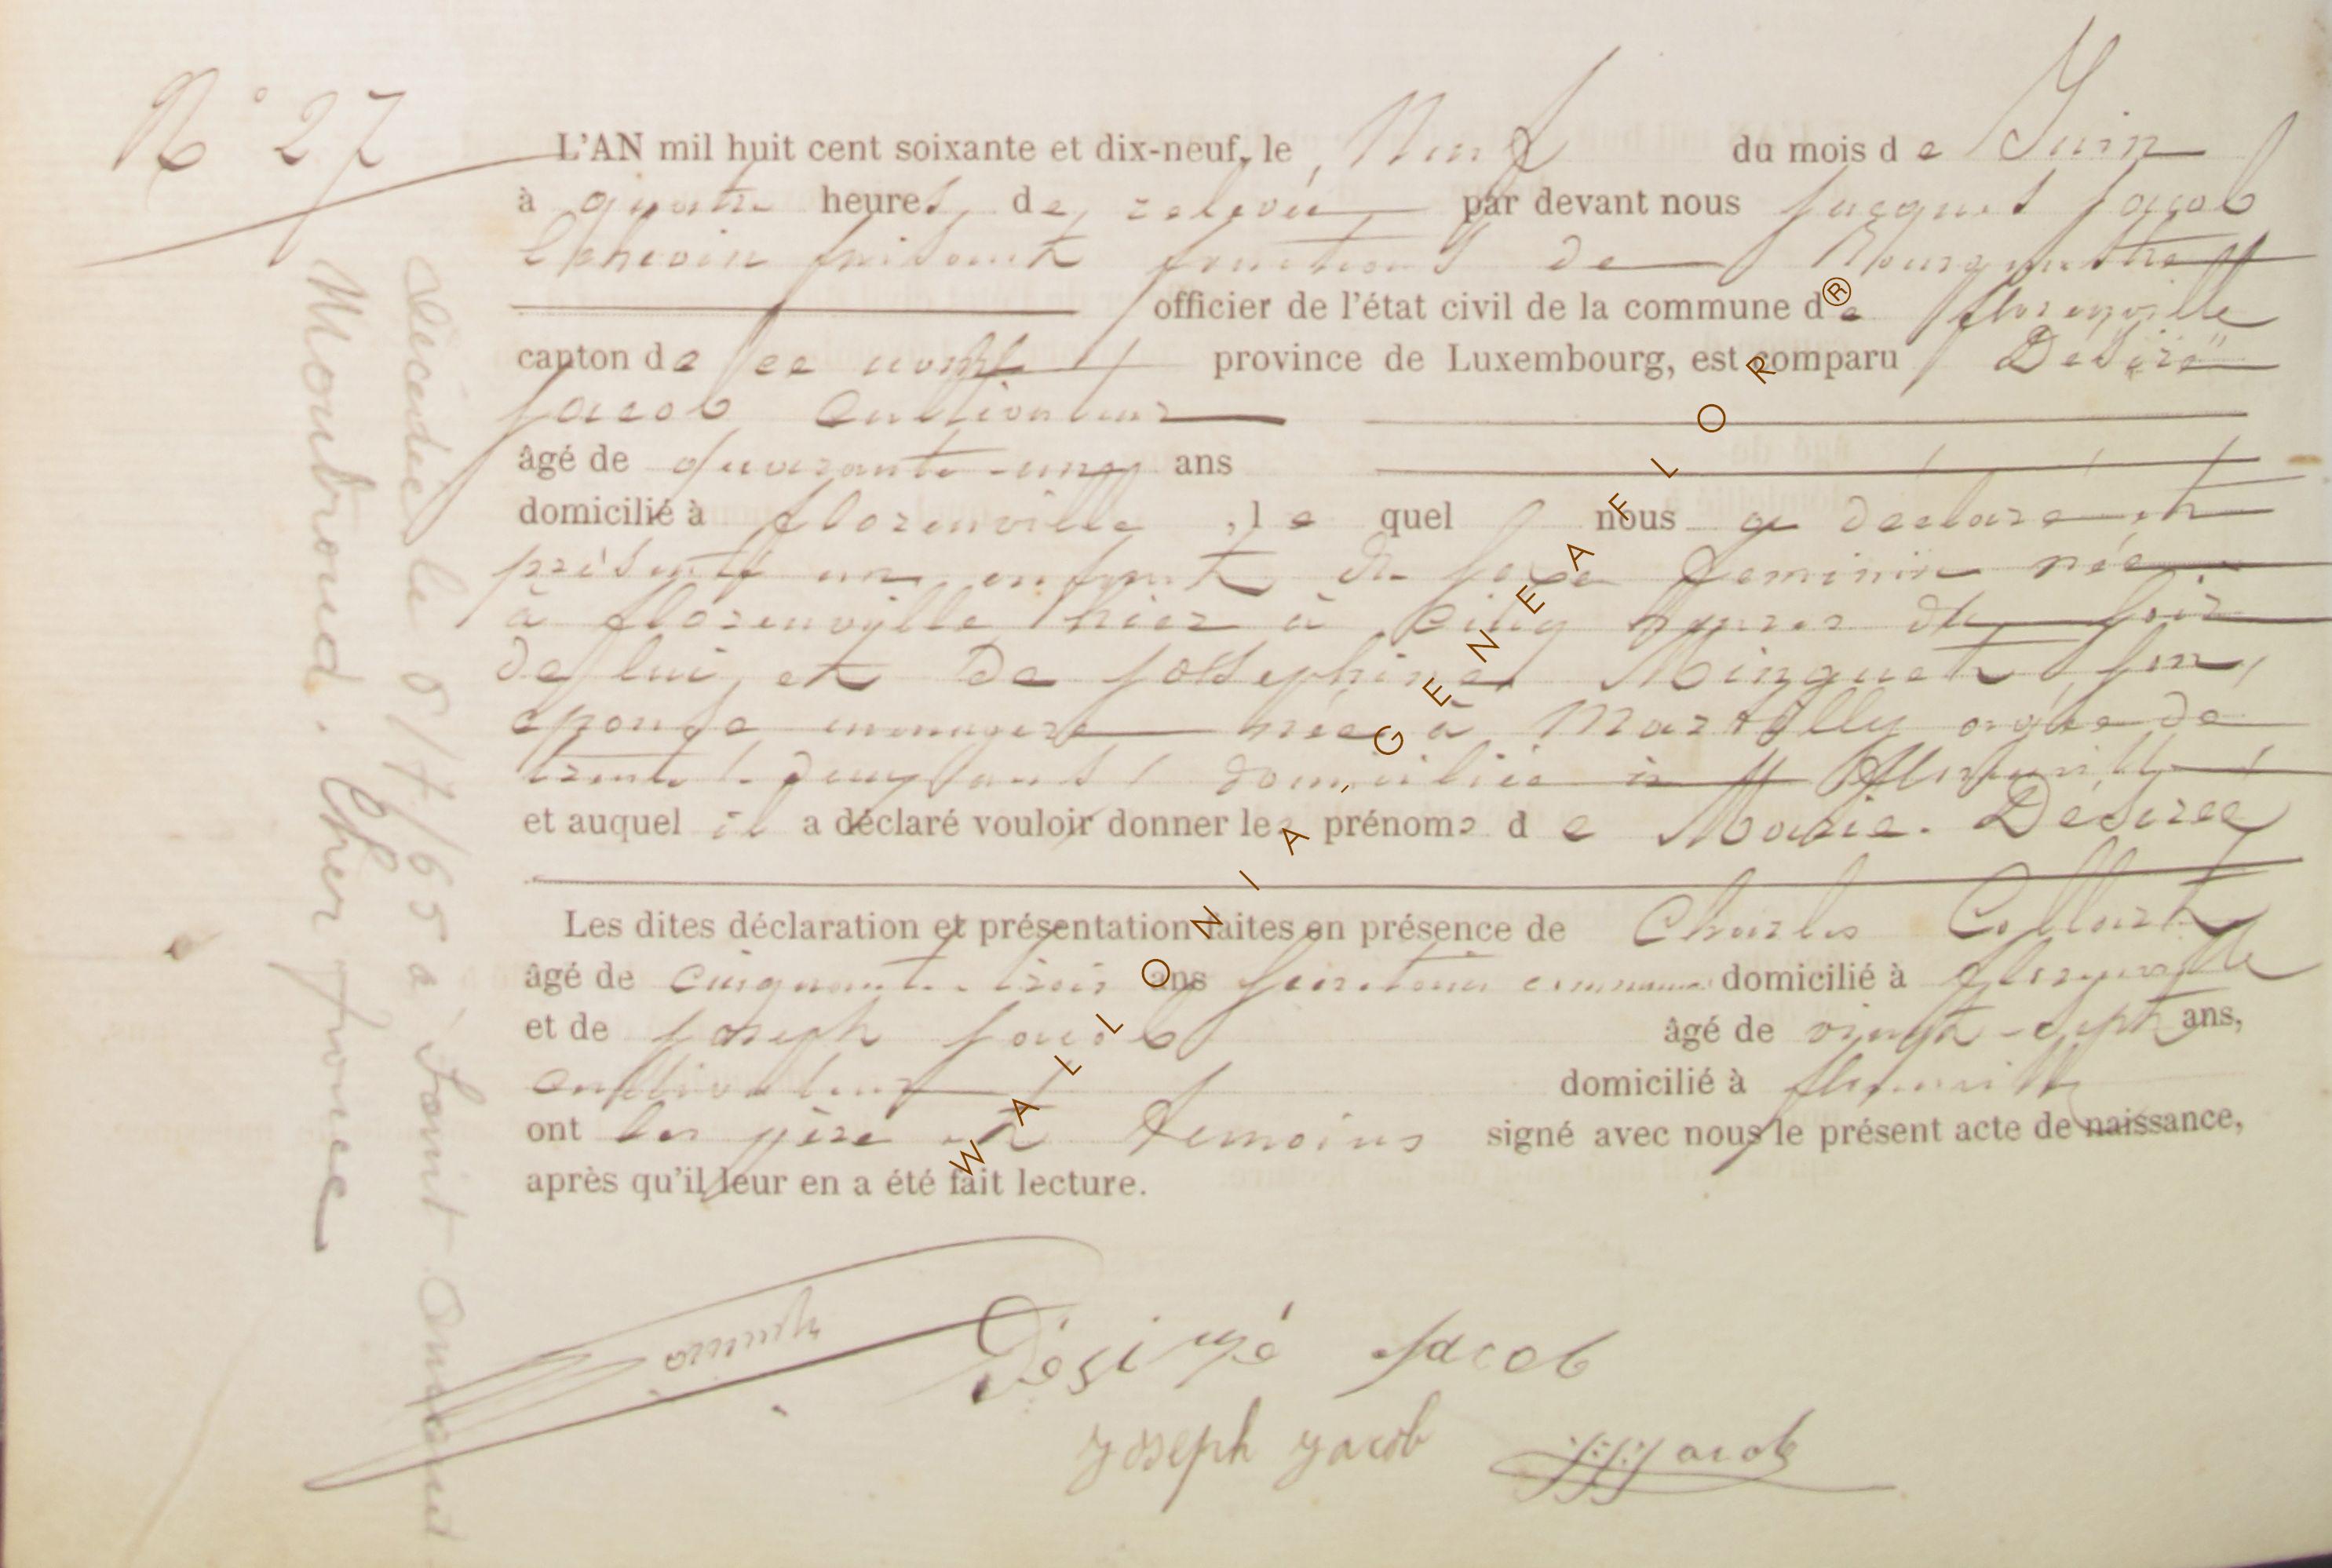 N° 27
L'AN mil huit cent soixante et dix-neuf, le Neuf du mois de Juin
à quatre heures de relevée par devant nous Jacques Jacob
Echevin faisant fonctions de Bourgmestre
officier de l'état civil de la commune de florenville
canton de ce nom province de Luxembourg, est comparu Désiré
Jacob Cultivateur
âgé de quarante-un ans
domicilié à florenville, le quel nous a déclaré et
présenté un enfant du sexe feminin née
à florenville hier à cinq heures du soir
de lui et de Josephine Minguet son
epouse menagere née à Martilly agée de
trente deux ans domiciliée à florenville
et auquel il a déclaré vouloir donner les prénoms de Marie. Désirée
Les dites déclaration et présentation faites en présence de Charles Collart
âgé de cinquante-trois ans domicilié à florenville
et de Joseph Jacob âgé de vingt-sept ans,
cultivateur domicilié à florenville
ont les père et temoins signé avec nous le présent acte de naissance,
après qu'il leur en a été fait lecture.
Désiré Jacob
Joseph Jacob JJJacob
décédée le 8/7/65 à Saint Amand
Montrond. Cher france
WALLONIA, GENEAFLOR®